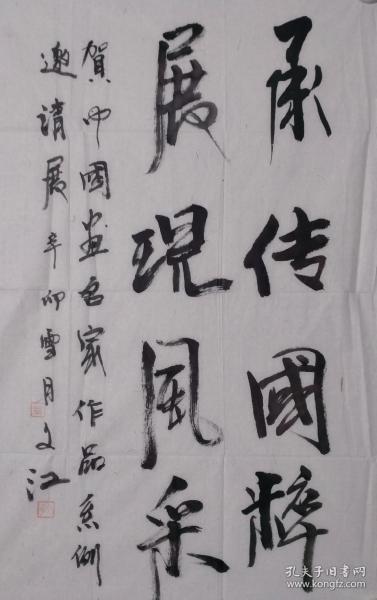 承传國粹
展現风采
賀中國画名家作品系例
邀請展辛卯雪月文江
孔夫子旧书网